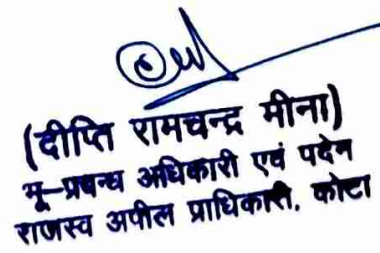 (दीप्ति रामचन्द्र मीना)
भू-प्रबन्ध अधिकारी एवं पदेन
राजस्व अपील प्राधिकारी, कोटा